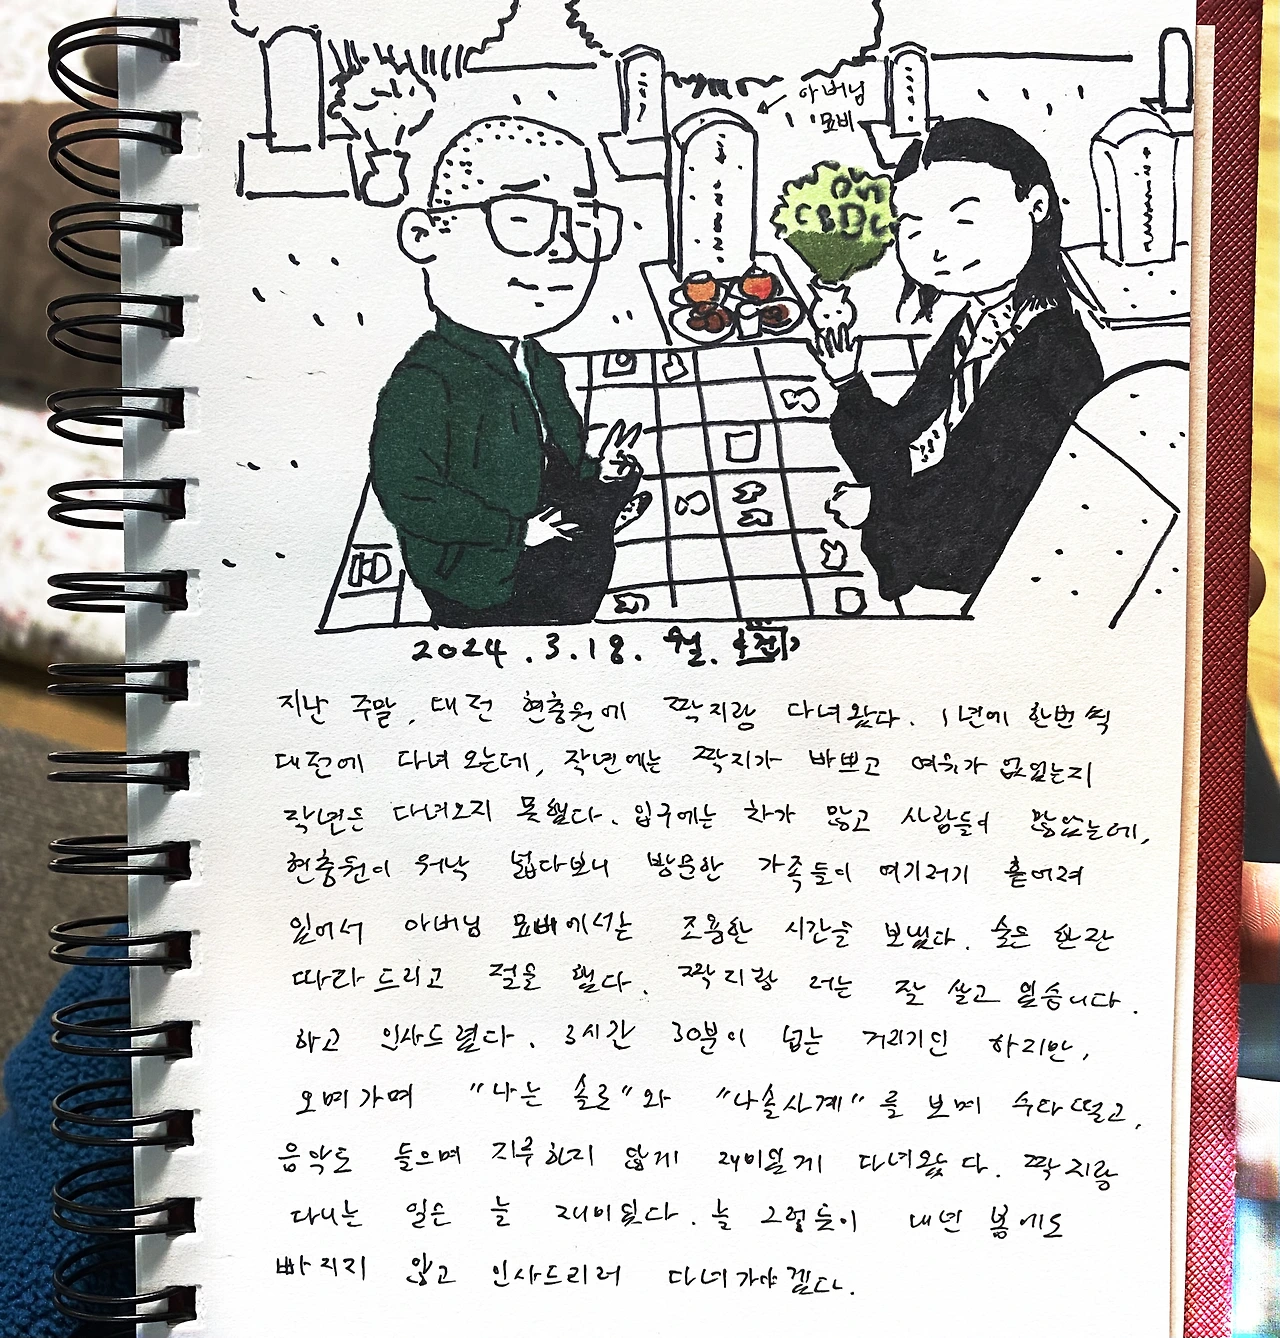 아버님
묘비
OH
CBDC
2024.3.18. 월.
지난 주말, 대전 현충원에 짝지랑 다녀왔다. 1년에 한번씩
대전에 다녀오는데, 작년에는 짝지가 바쁘고 여유가 없었는지
작년은 다녀오지 못했다. 입구에는 차가 많고 사람들이 많았는데,
현충원이 워낙 넓다보니 방문한 가족들이 여기저기 흩어져
있어서 아버님 묘비에서는 조용한 시간을 보냈다. 술은 한잔
따라드리고 절을 했다. 짝지랑 저는 잘 살고 있습니다.
하고 인사드렸다. 3시간 30분이 넘는 거리기인 하지만,
오며가며 "나는 솔로"와 "나솔사계"를 보며 수다떨고,
음악도 들으며 지루하지 않게 재미있게 다녀왔다. 짝지랑
다니는 일은 늘 재미있다. 늘 그렇듯이 내년 봄에도
빠지지 않고 인사드리러 다녀가야겠다.